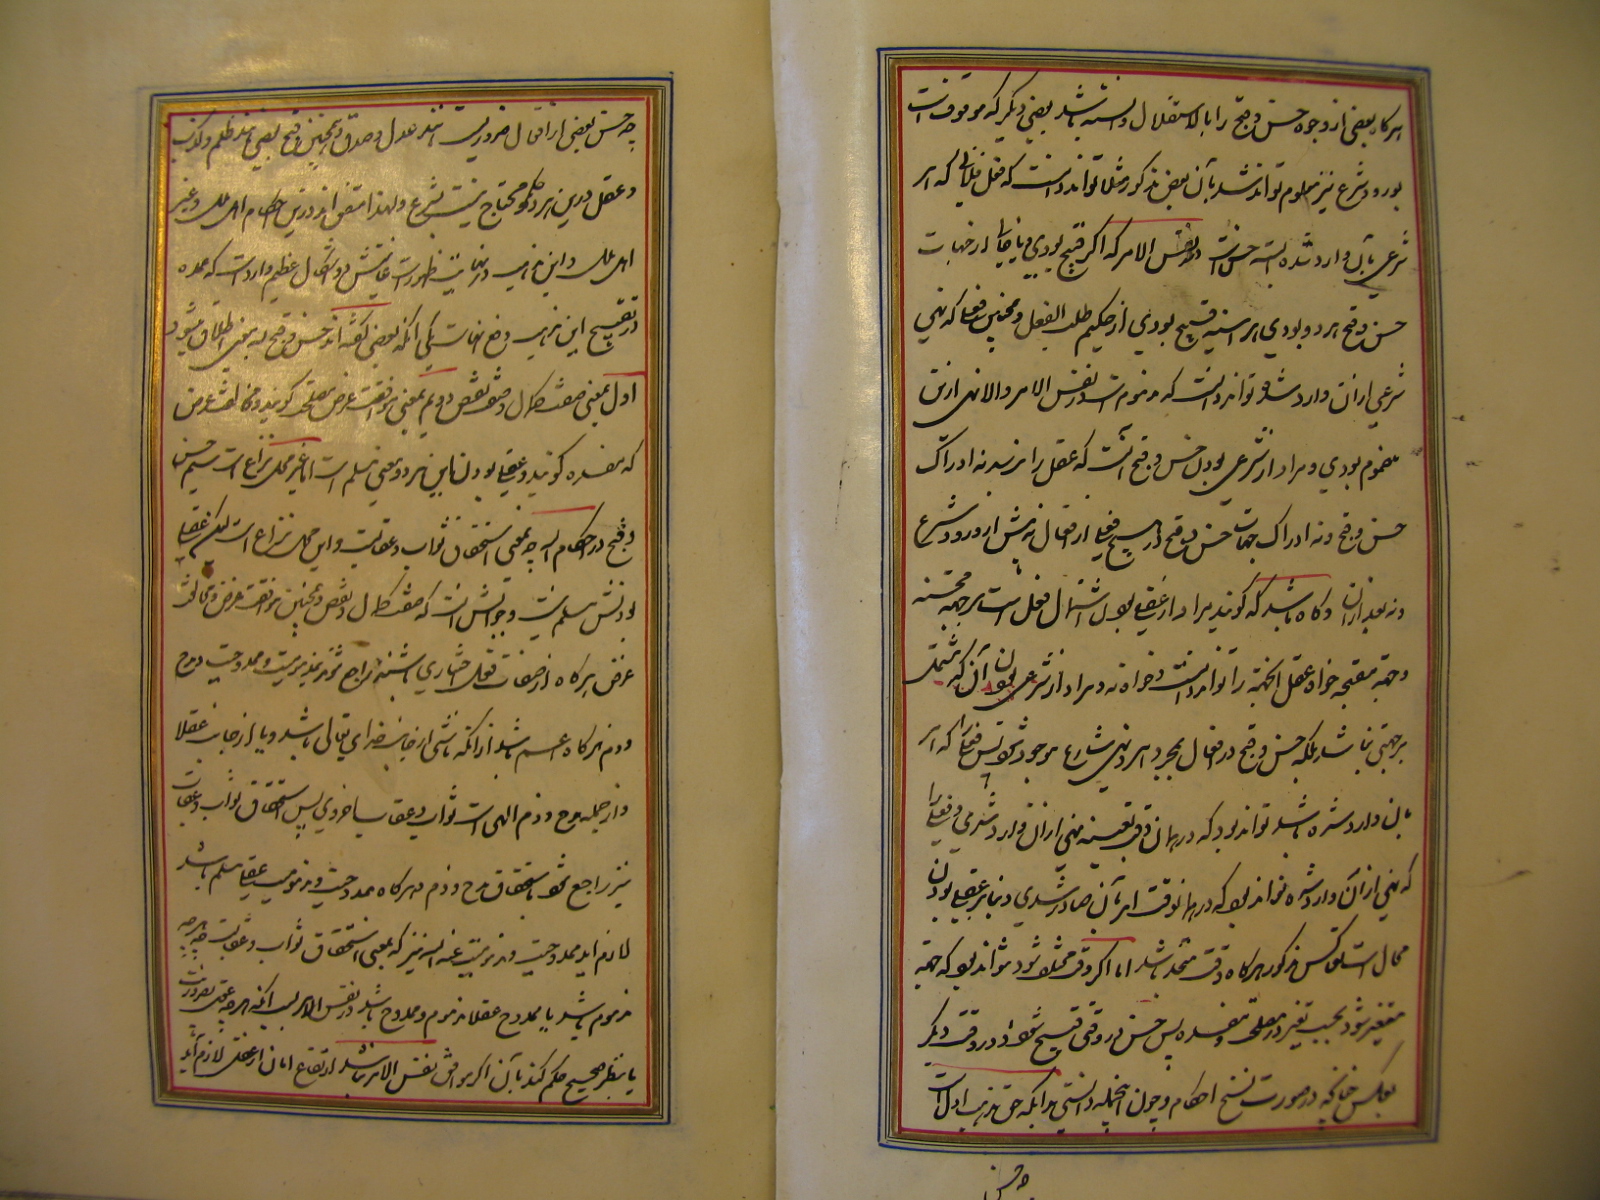 هرگاه بعضی از وجوه حسن و قبح را بالاستقلال دانسته باشد بعضی دیگر که موقوفست
بورود شرع نیز معلوم تواند شد بآن بعض مذکور مثلا تواند دانست که فعل فلانی که امر
شرعی بآن وارد شده البته حسن است در نفس الامر که اگر قبیح بودی یا خالی از جهات
حسن و قبح هر دو بودی هر آینه قبیح بودی از حکیم طلب الفعل و همچنین فعلی که نهی
شرعی از آن وارد شد تواند دانست که مذموم است در نفس الامر و الا نهی از آن
مذموم بودی و مراد از شرعی بودن حسن و قبح آنست که عقل را نرسد نه ادراک
حسن و قبح و نه ادراک جهات حسن و قبح در هیچ فعلی از افعال نه پیش از ورود شرع
و نه بعد از آن و گاه باشد که گویند مراد از عقلی بودن اشتمال فعل است بر جهة محسنه
و جهة مقبحه خواه عقل آنجهة را تواند دانست و خواه نه و مراد از شرعی بودن آن که مشتمل
بر جهتی نباشد بلکه حسن و قبح در افعال بمجرد امر و نهی شارع موجود شود پس فعلی که امر
بآن وارد شده باشد تواند بود که در همان وقت بعینه نهی از آن وارد شدی و فعلی را
که نهی از آن وارد شده تواند بود که در همانوقت امر بآن صادر شدی و بنا بر عقلی بودن
محال است عکس مذکور هرگاه وقت متحد باشد اما اگر وقت مختلف شود تواند بود که جهة
متغیر شود بحسب تغیر در مصلحة و مفسده پس حسن در وقتی قبیح شود در وقت دیگر
بعکس چنانکه در صورت نسخ احکام و چون اینجمله دانستی بدانکه حق مذهب اول است
چه حسن
چه حسن بعضی از افعال ضروریست مانند عدل و صدق و همچنین قبح بعضی مانند ظلم و کذب
و عقل درین هر دو حکم محتاج نیست بشرع و لهذا متفق اند درین احکام اهل ملل و غیر
اهل ملل و این مذهب در نهایت ظهور است غایتش دو اشکال عظیم وارد است که عمده
در تقبیح این مذهب دفع آنهاست یکی آنکه بعضی گفته اند حسن و قبح به سه معنی اطلاق میشود
اول بمعنی صفت کمال و صفت نقص دویم بمعنی موافقت غرض که مصلحت گویند و مخالفت غرض
که مفسده گویند و عقلی بودن باین هر دو معنی مسلم است اما غیر محل نزاع است سیم حسن
و قبح در احکام الله بمعنی استحقاق ثواب و عقابست و این محل نزاع است لیکن عقلی
بودنش مسلم نیست و جوابش آنست که صفت کمال و نقص و همچنین موافقت غرض و مخالفت
غرض هرگاه از صفات فعل اختیاری باشند راجع شوند بمذمومیت و ممدوحیت و مدح
و ذم هرگاه اعم باشد از آنکه ناشی از جانب خدای تعالی باشد و یا از جانب عقلا
و از جمله مدح و ذم الهی است ثواب و عقاب اخروی پس استحقاق ثواب و عقاب
نیز راجع شود باستحقاق مدح و ذم و هرگاه ممدوحیت و مذمومیت عقلی مسلم باشد
لازم آید ممدوحیت و مذمومیت عند الله نیز که بمعنی استحقاق ثواب و عقابست چه هر چه
مذموم باشد یا ممدوح عقلا مذموم و ممدوح باشد در نفس الامر بسبب آنکه هر چه عقل بضرورت
یا بنظر صحیح حکم کند بآن اگر موافق نفس الامر نباشد ارتفاع امان از عقل لازم آید